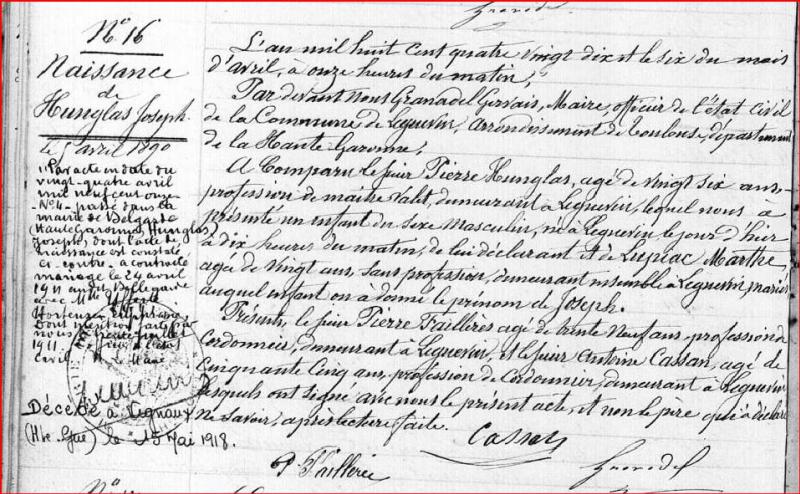 N° 16
Naissance
de
Hunglas Joseph
le 5 avril 1890
Par acte en date du
vingt-quatre avril
mil neuf cent onze
N° 4 passé dans la
mairie de
(Haute Garonne) Hunglas
Joseph, dont l'acte de
naissance est constaté
ci contre a contracté
mariage le 24 avril
1911 audit Bellegarde
avec Mlle
Hortense
Dont mention faite par
nous
1911. officier d'état
civil. Le Maire
Décédé à Lignaux
(Hte Gne) le 15 Mai 1918.
L'an mil huit cent quatre vingt dix et le six du mois
d'avril, à onze heures du matin,
Par devant nous Granadel Gervais, Maire, officier de l'état civil
de la Commune de Léguevin, arrondissement de Toulouse, département
de la Haute Garonne,
A Comparu le sieur Pierre Hunglas, agé de vingt six ans,
profession de maître valet, demeurant à Léguevin, lequel nous à
présenté un enfant du sexe masculin, né à Léguevin le jour d'hier
à dix heures du matin, de lui déclarant et de Lupiac Marthe,
agée de vingt ans, sans profession, demeurant ensemble à Léguevin, mariés
auquel enfant on à donné le prénom de Joseph.
Présents, le sieur Pierre Taillères agé de trente neuf ans, profession de
Cordonnier, demeurant à Léguevin, et le sieur Antoine Cassan, agé de
Cinquante Cinq ans, profession de Cordonnier, demeurant à Léguevin
lesquels ont signé avec nous le présent acte, et non le père qui à déclaré
ne savoir, après lecture faite.
Cassan
P. Taillères
N°